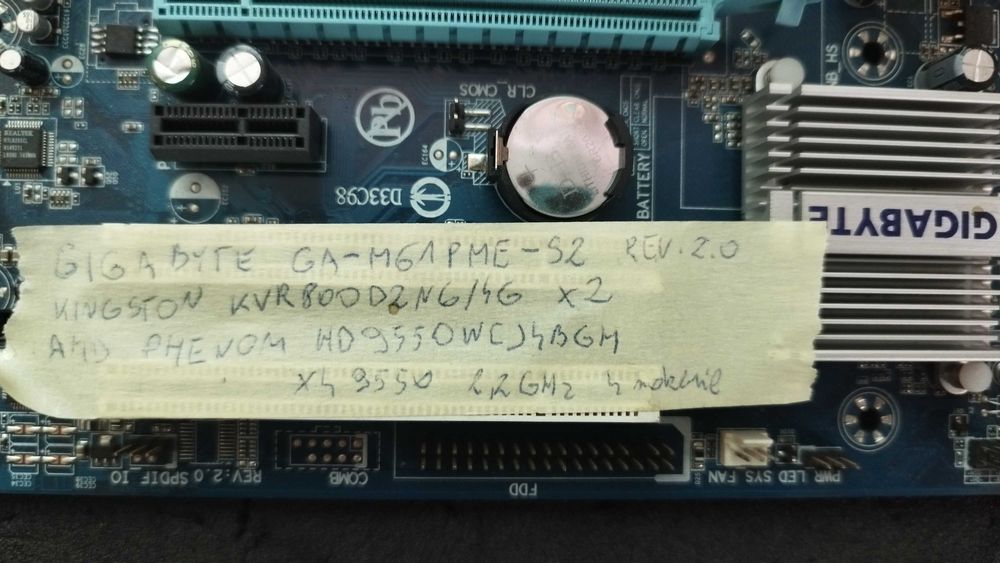 CLR_CMOS
NB HS
BATTERY
Pb
D33C98
GIGABYTE
GIGABYTE GA-M61PME-S2 REV.2.0
KINGSTON KVR800D2N6/4G X2
AMD PHENOM HD9550WCJ4BGH
X4 9550 2,2 GHz 4
SPDIF_IO
REV:2.0
COMB
FDD
SYS_FAN
PWR_LED